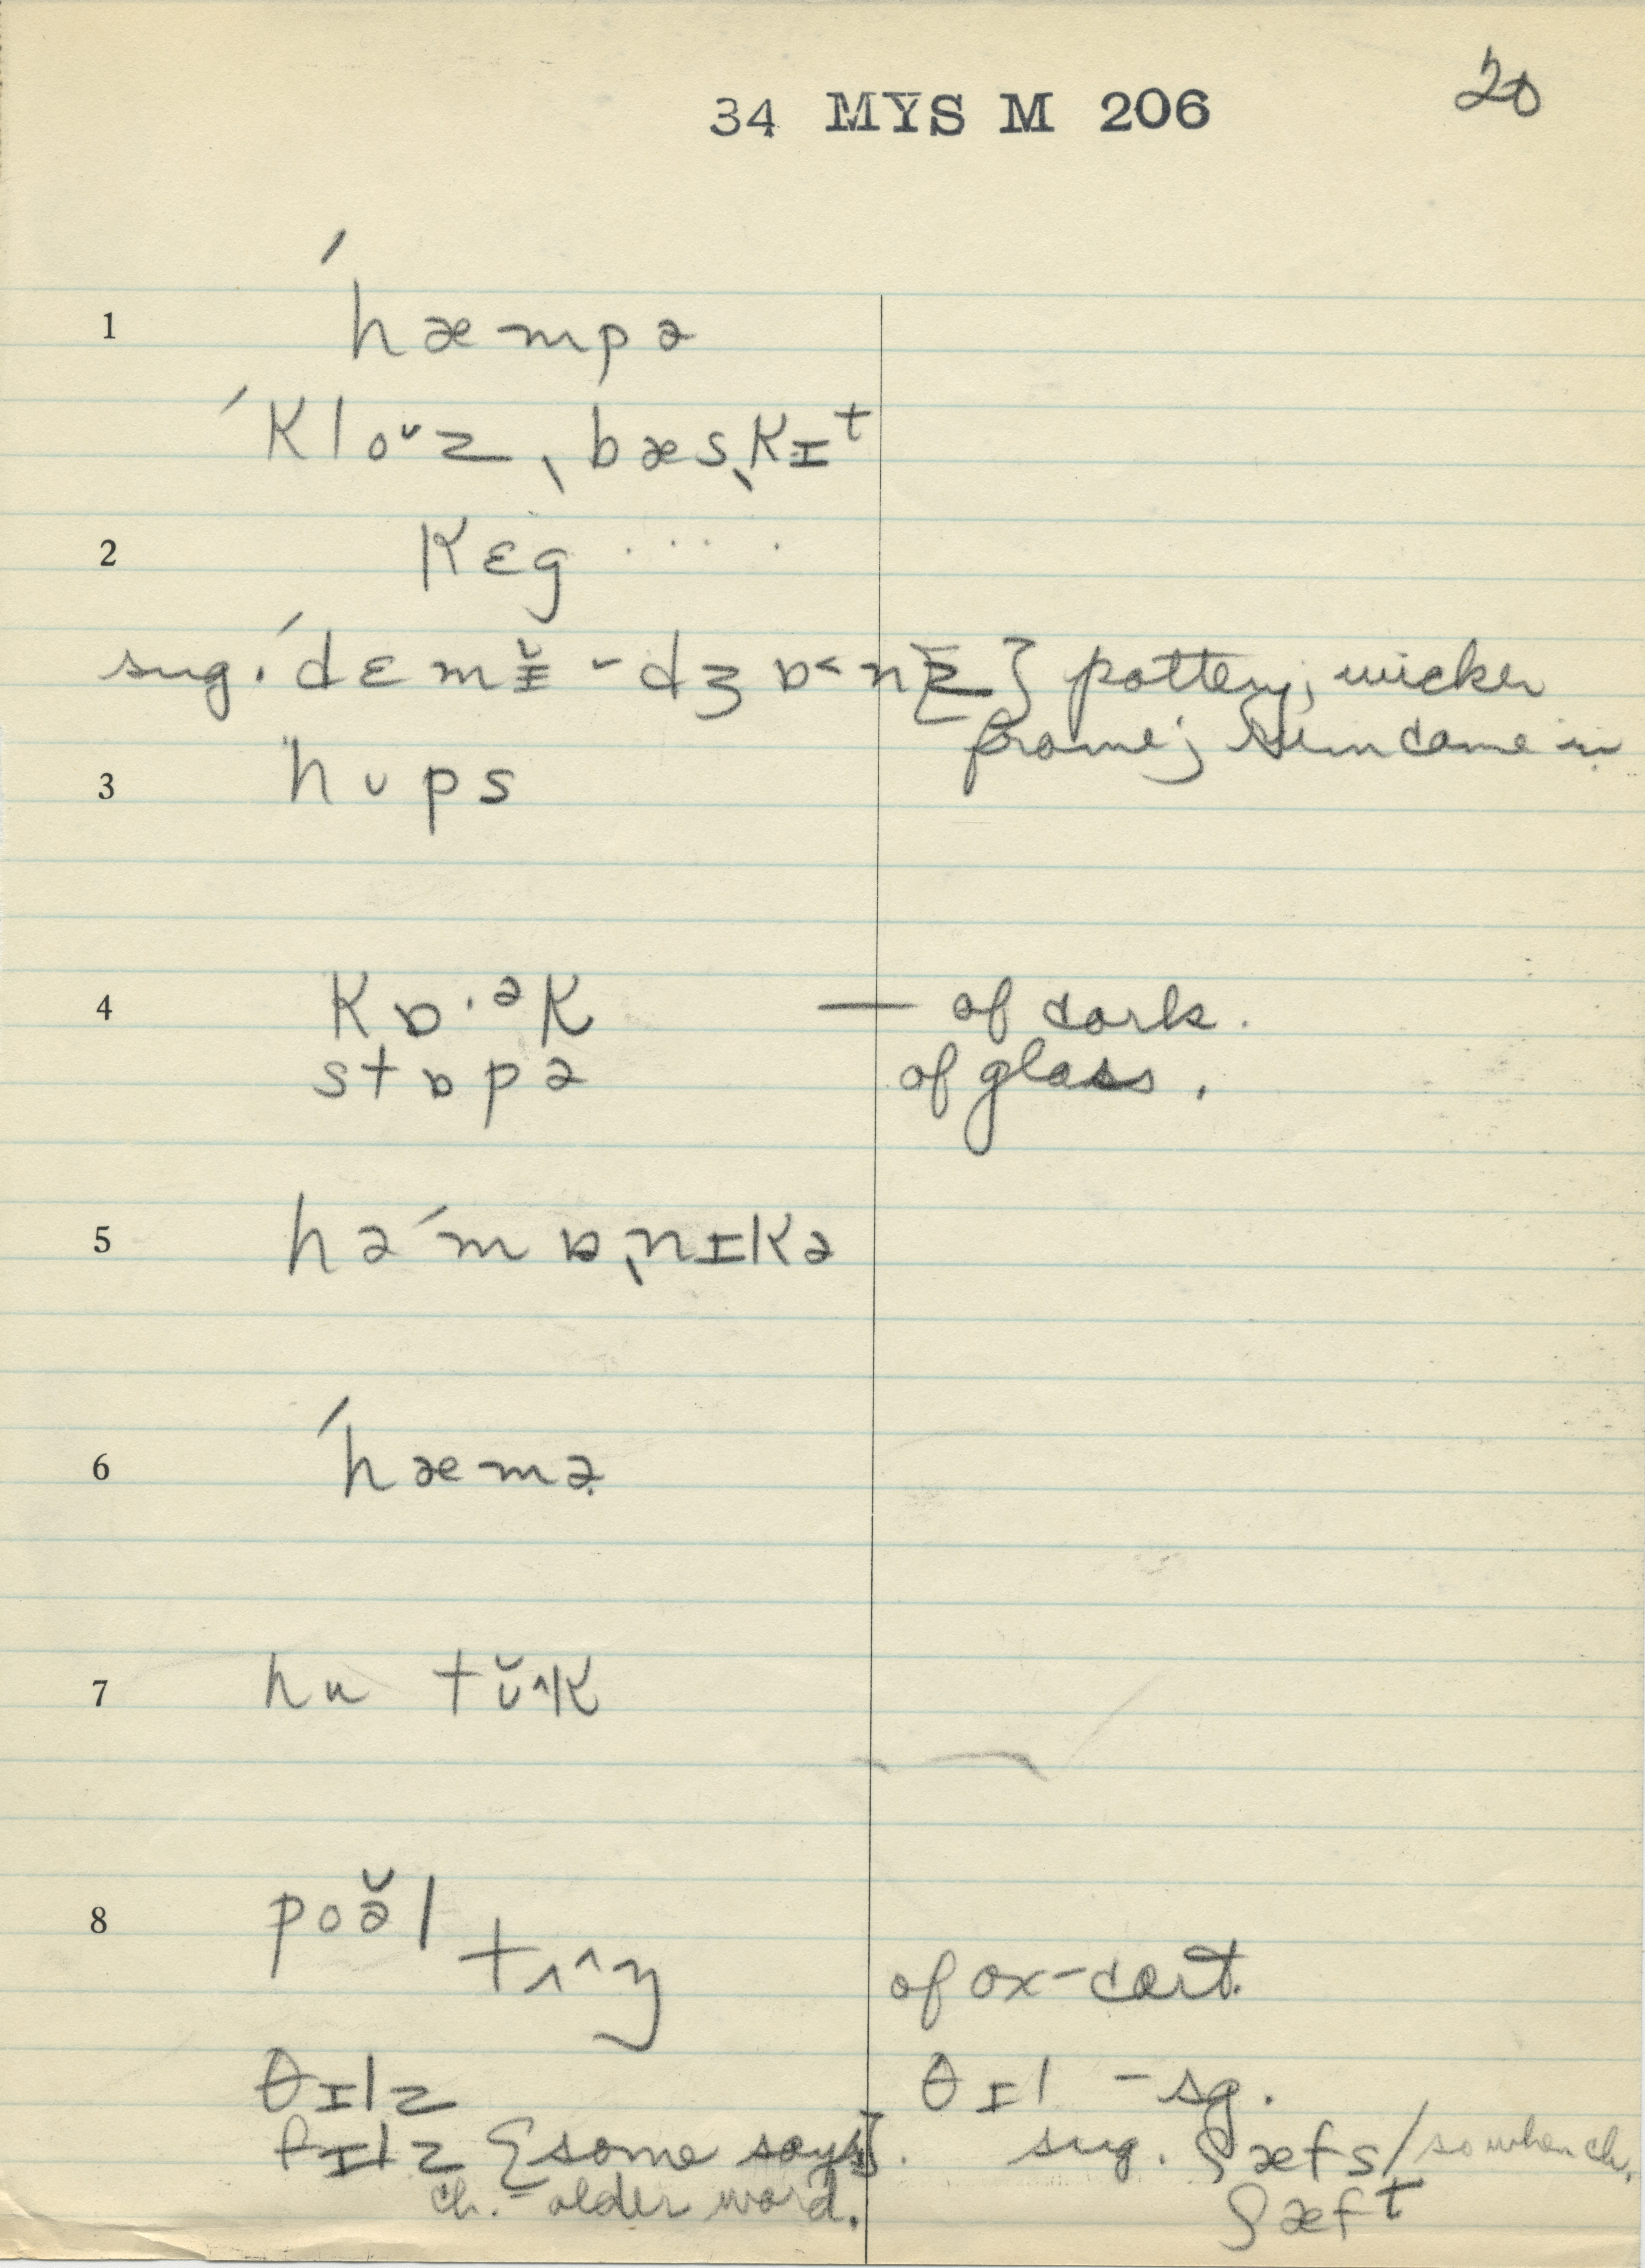 34 MYS M 206
20
1 ˊhæmpə
ˊkloᵕz ˎbæsˎkɪᵗ
2 kɛg . . . . .
sug. ˊdɛmɪ̆ - dʒɒ˂n } pottery; wicker
frame; rum came in
3 hups
4 kɒ·ᵊk — of cork.
stɒpə of glass.
5 həˊmɒˎnɪkə
6 ˊhæmə
7 hu tʊ̆^k
8 poə̆l
tʌ^ŋ of ox-cart.
θɪlz θɪl - sg.
fɪlz {some say}. sug. ʃæfs / so when ch.
ch. - older word. ʃæfᵗ